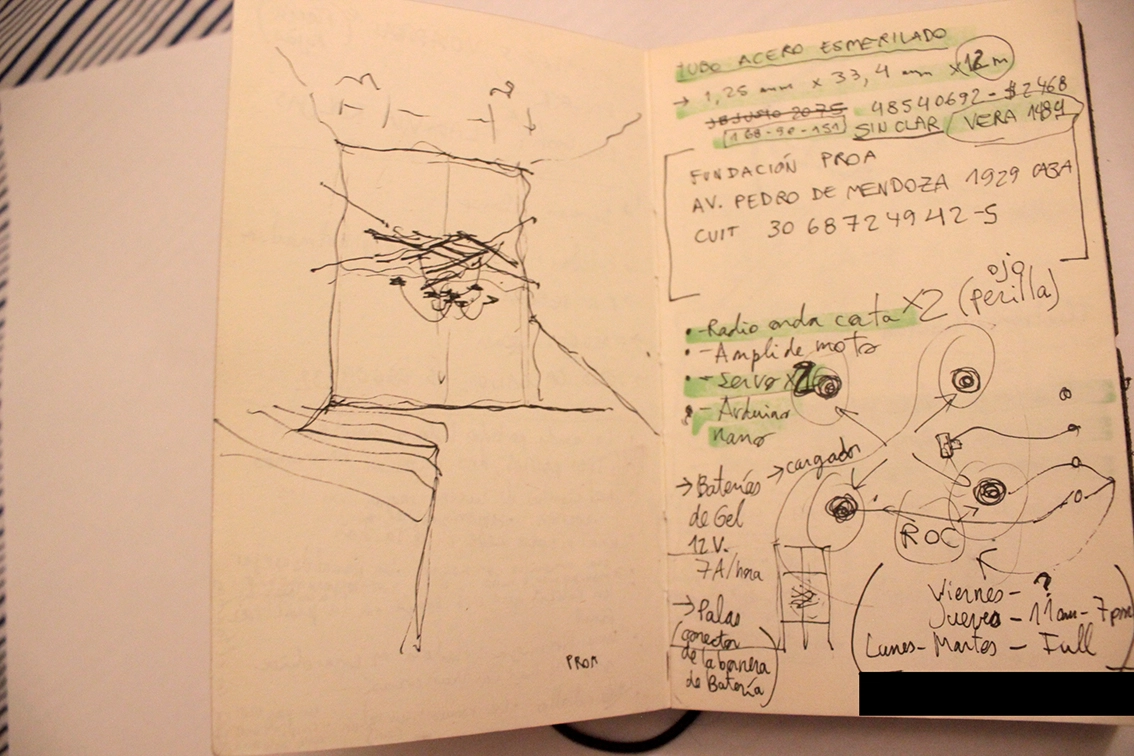 PROA
TUBO ACERO ESMERILADO
→ 1,25 mm x 33,4 mm x 12 m
JB JUSTO 2075 48540692 - $2468
168-90-151 SINCLAR VERA 1489
FUNDACIÓN PROA
AV. PEDRO DE MENDOZA 1929 CABA
CUIT 30 68724942-5
• - Radio onda corta x2 (ojo perilla)
• - Ampli de moto
• - Servo x
• - Arduino
nano
→ Baterías → cargador
de Gel
12 V.
7A/hora
ROC
→ Palas
(conector
de la bornera
de Batería)
(Viernes - ?
Jueves - 11am - 7pm
Lunes - Martes - Full